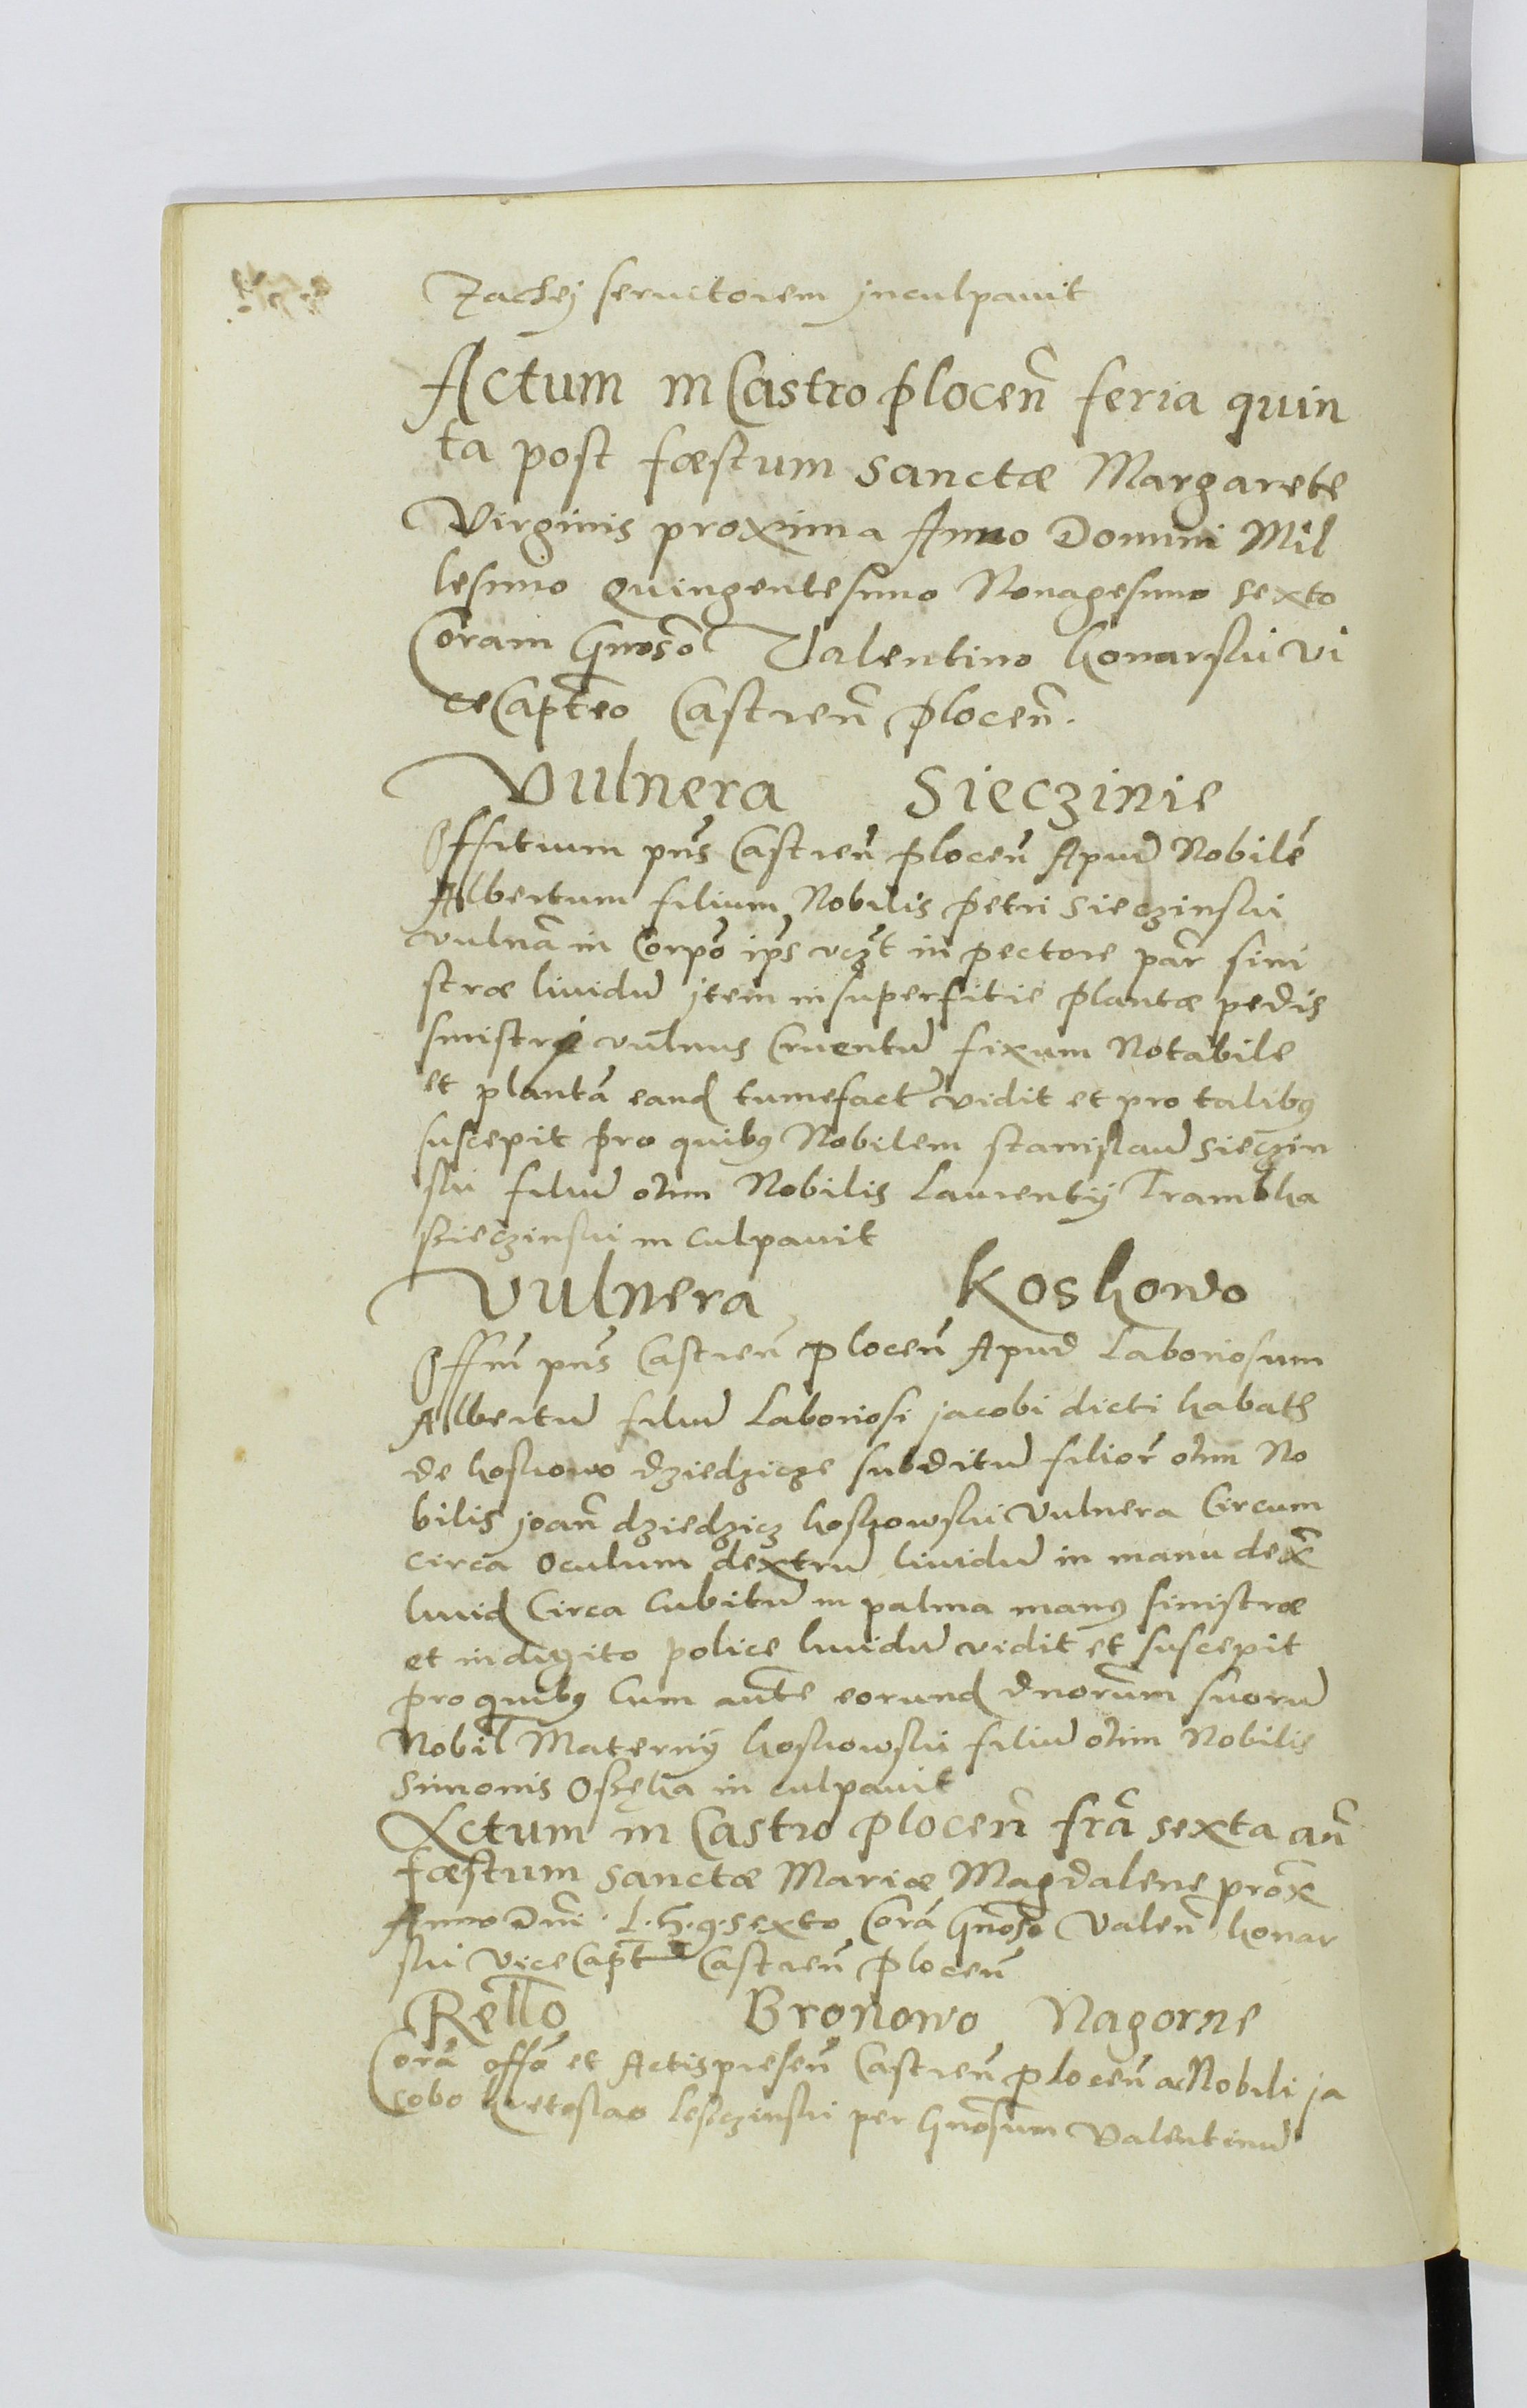 Zachej seruitorem jnculpauit
Actum in Castro plocen̄ feria quin
ta post fæstum sanctæ Margarete
Virginis proxima Anno Domini Mil
lesimo Quingentesimo Nonagesimo sexto
Coram Gn̄oso Valentino Konarski Vi
ceCapteo Castren̄ plocen̄.
Vulnera Sieczinie
Offitium pn̄s Castren̄ plocen̄ Apud Nobilē
Albertum filium Nobilis petri Sieczinski
vulnā in Corpō ip̄s vcz̄t in pectore par̄ sini
stræ liuidū jtem in superfitie plantæ pedis
sinistrj vulnus Cruentū fixum Notabile
et plantā eand tumefact vidit et pro talibꝰ
suscepit pro quibꝰ Nobilem stanislaū Sieczin
ski filiū olim Nobilis Laurentij Trambka
Sieczinski in culpauit
Vulnera Koskowo
Offm̄ pn̄s Castren̄ plocen̄ Apud Laboriosum
Albertū filiū Laboriosi jacobi dicti kabath
de koskowo dziedzicze subditū filior̄ olim No
bilis joan̄ dziedzicz koskowski vulnera Circum
circa oculum dextrū liuidū in manu dex̄
liuid Circa Cubitū in palma manꝰ sinistræ
et in digito police liuidū vidit et suscepit
pro quibꝰ Cum aut̄e eorund dn̄orum suorū
Nobil Maternij koskowski filiū olim Nobilis
Simonis Oszęka in culpauit
Actum in Castro plocen̄ fr̄a sexta an̄
fæstum sanctæ Mariæ Magdalene prox̄
Anno Dn̄i. sexto Corā Gn̄oso Valen̄ konar
ski viceCapt Castren̄ plocen̄
Rell̄o Bronowo Nagorne
Corā off̄o et Actis presen̄ Castren̄ plocen̄ ac Nobili ja
cobo Lesczinski per Gn̄osum Valentinū